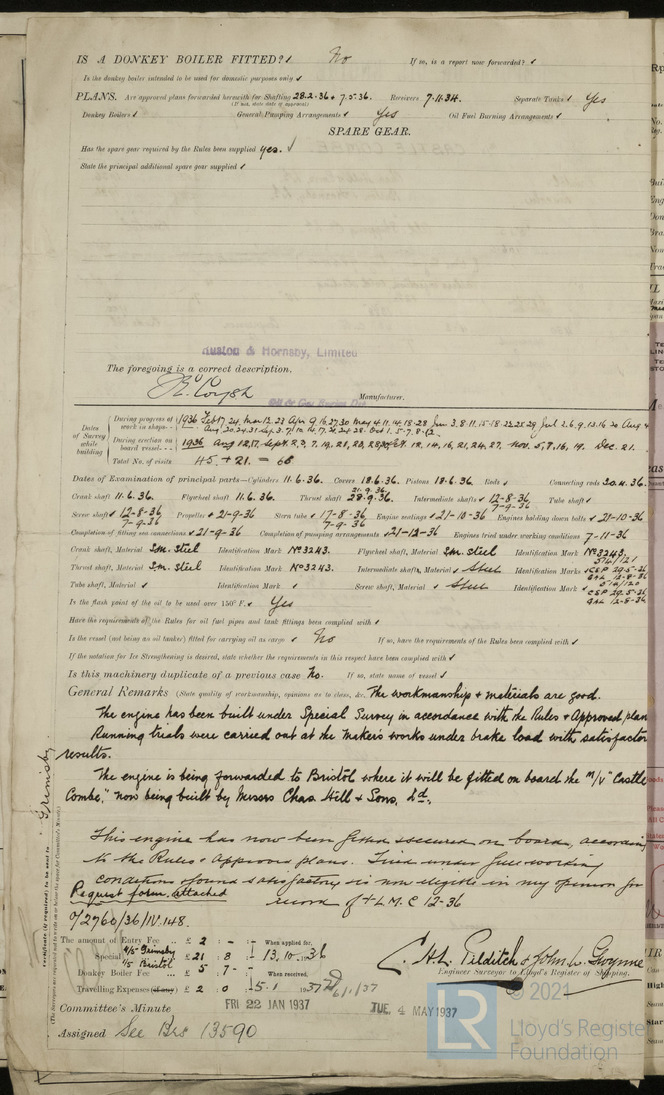 IS A DONKEY BOILER FITTED? ✓ No If so, is a report now forwarded? ✓
Is the donkey boiler intended to be used for domestic purposes only ✓
PLANS. Are approved plans forwarded herewith for Shafting 28.2.36 + 7.5.36. Receivers 7.11.34. Separate Tanks ✓ Yes
(If not, state date of approval)
Donkey Boilers ✓ General Pumping Arrangements ✓ Yes Oil Fuel Burning Arrangements ✓
SPARE GEAR.
Has the spare gear required by the Rules been supplied yes. ✓
State the principal additional spare gear supplied ✓
& Hornsby, Limited
The foregoing is a correct description,
Manufacturer.
Dates of Survey while building
During progress of work in shops - - 1936 Feb 17, 24, Mar 12, 23 Apr 9, 16, 27, 30 May 4, 11, 14, 18, 28 Jun 3, 8, 11, 15, 18, 22, 25, 29 Jul 2, 6, 9, 13, 16, 20 Aug 4
During erection on board vessel - - 1936 Aug 12, 17, Sept. 2, 3, 7, Nov. 5, 8, 16, 19. Dec. 21.
Total No. of visits 45 + 21 = 66
Dates of Examination of principal parts—Cylinders 11.6.36. Covers 18.6.36. Pistons 18.6.36. Rods ✓ Connecting rods 30.4.36.
Crank shaft 11.6.36. Flywheel shaft 11.6.36. Thrust shaft 21.9.36 28.9.36. Intermediate shafts ✓ 12-8-36 7-9-36 Tube shaft ✓
Screw shaft ✓ 12-8-36 7-9-36 Propeller ✓ 21-9-36 Stern tube ✓ 17-8-36 7-9-36 Engine seatings ✓ 21-10-36 Engines holding down bolts ✓ 21-10-36
Completion of fitting sea connections ✓ 21-9-36 Completion of pumping arrangements ✓ 21-12-36 Engines tried under working conditions 7-11-36
Crank shaft, Material S.M. Steel Identification Mark No 3243. Flywheel shaft, Material S.M. Steel Identification Mark No 3243.
Thrust shaft, Material S.M. Steel Identification Mark No 3243. Intermediate shafts, Material ✓ Steel Identification Marks ✓ CSP 29-5-36
Tube shaft, Material ✓ Identification Mark ✓ Screw shaft, Material ✓ Steel Identification Mark ✓ CSP 29-5-36
Is the flash point of the oil to be used over 150° F. ✓ Yes
Have the requirements of the Rules for oil fuel pipes and tank fittings been complied with ✓
Is the vessel (not being an oil tanker) fitted for carrying oil as cargo ✓ No If so, have the requirements of the Rules been complied with ✓
If the notation for Ice Strengthening is desired, state whether the requirements in this respect have been complied with ✓
Is this machinery duplicate of a previous case No. If so, state name of vessel ✓
General Remarks (State quality of workmanship, opinions as to class, &c. The workmanship & materials are good.
The engine has been built under Special Survey in accordance with the Rules & Approved plan
Running trials were carried out at the makers works under brake load with satisfactor
results.
The engine is being forwarded to Bristol where it will be fitted on board the M/V "Castle
Combe," now being built by Messrs Chas. Hill & Sons, Ld.
This engine has now been fitted & secured on board, according
to the Rules & Approved plans. Tried under full working
conditions & found satisfactory & is now eligible in my opinion for
Request form attached record of + L.M.C 12-36
9/2760/36/IV.148.
The amount of Entry Fee .. £ 2 : - : - When applied for,
Special 4/5 Grimsby 1/5 Bristol £ 21 : 8 : - 13.10.1936
Donkey Boiler Fee .. £ 5 7 - When received,
Travelling Expenses (if any) £ 2 : 0 : 15.1 1937 6/1/37
C. H. L. Pilditch & John W. Gwynne
Engineer Surveyor to Lloyd's Register of Shipping.
Committee's Minute FRI 22 JAN 1937 TUE 4 MAY 1937
Assigned See Brs 13590
Grimsby.
Certificate (if required) to be sent to
© 2021
LR
Lloyd's Registe
Foundation